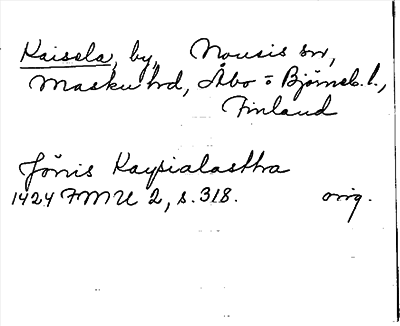 Kaisela, by, Nousis sn,
Masku hd, Åbo = Björneb. l.,
Finland
Jönis Kaysialasthra
1424 FMU 2, s. 318. orig.